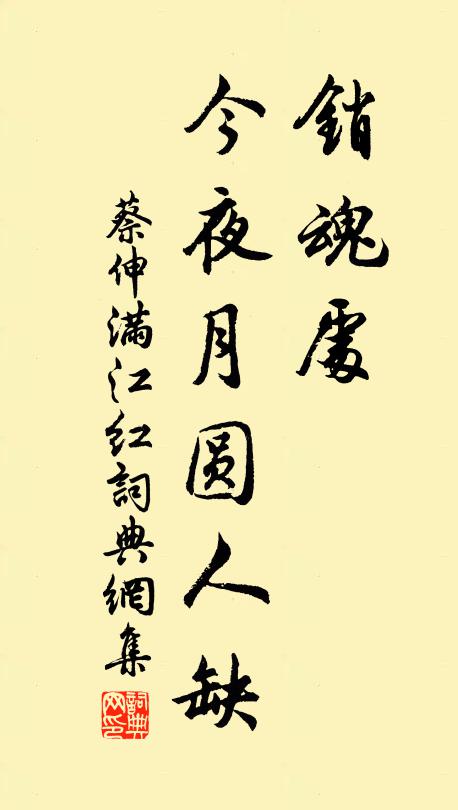 銷魂處
今夜月圓人缺
蔡伸滿江紅詞典網集
詞典網印